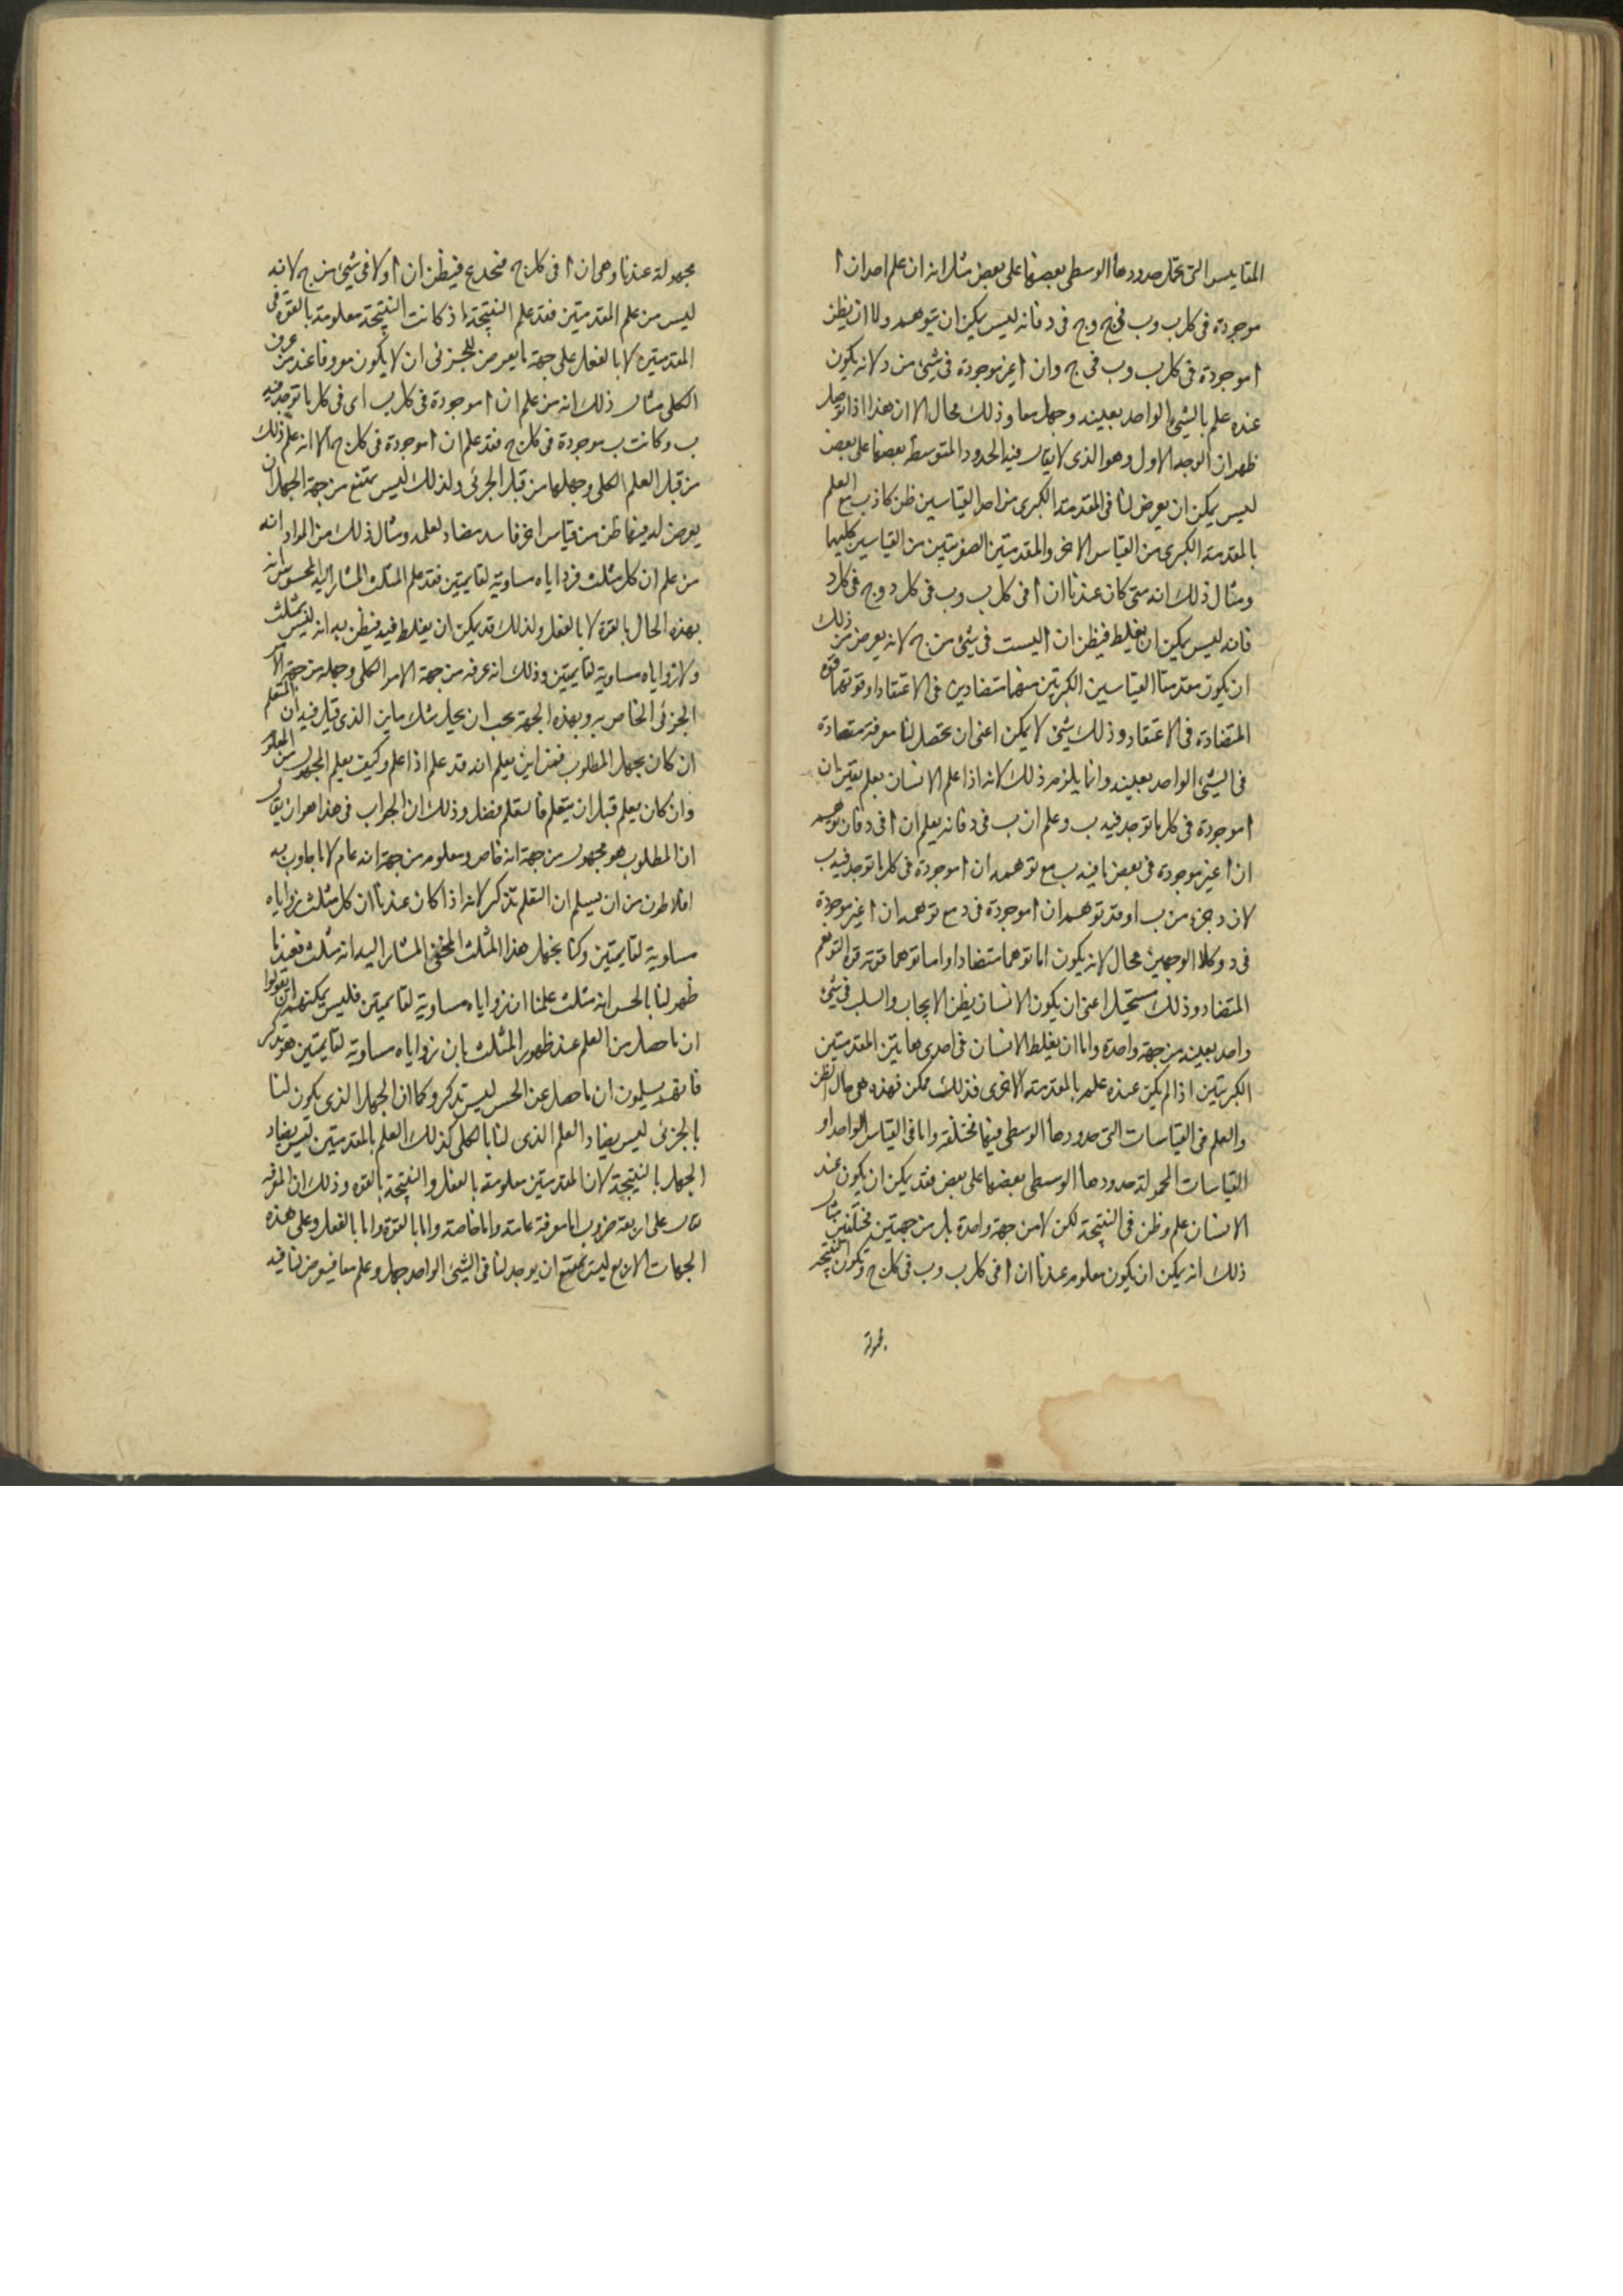 المقاييس التى تحمل حدودها الوسطى بعضها على بعض مثل انه ان علم احد ان ا
موجودة فى كل ب وب فى ج وج فى د فانه ليس يمكن ان يتوهم ولا ان يظن
ا موجودة فى كل ب وب فى ج وان ا غير موجودة فى شىء من د لانه يكون
عنده علم بالشىء الواحد بعينه وجهل معا وذلك محال الا ان هذا اذا تؤمل
ظهر ان الوجه الاول وهو الذى لا يقال فيه الحدود المتوسطة بعضها على بعض
ليس يمكن ان يعرض لنا فى المقدمة الكبرى من احد القياسين ظن كاذب مع العلم
بالمقدمة الكبرى من القياس الاخر والمقدمتين الصغريتين من القياسين كليهما
ومثال ذلك انه متى كان عندنا ان ا فى كل ب وب فى كل د وج فى كل د
فانه ليس يمكن ان يغلط فيظن ان ا ليست فى شىء من ج لانه يعرض من ذلك
ان يكون مقدمتا القياسين الكبريين منهما متضادين فى الاعتقاد او قوتهما قوة
المتضادة فى الاعتقاد وذلك شىء لا يمكن اعنى ان تحصل لنا معرفة متضادة
فى الشىء الواحد بعينه وانما يلزم ذلك لانه اذا علم الانسان بعلم يقين ان
ا موجودة فى كل ما توجد فيه ب وعلم ان ب فى د فانه يعلم ان ا فى د فان توهم
ان ا غير موجودة فى بعض ما فيه ب مع توهمه ان ا موجودة فى كل ما توجد فيه ب
لان د جزء من ب او قد توهم ان ا موجودة فى د مع توهمه ان ا غير موجودة
فى د وكلا الوجهين محال لانه يكون اما توهما متضادا واما توهما قوته قوة التوهم
المتضاد وذلك مستحيل اعنى ان يكون الانسان يظن الايجاب والسلب فى شىء
واحد بعينه من جهة واحدة واما ان يغلط الانسان فى احدى هاتين المقدمتين
الكبريتين اذا لم يكن عنده علم بالمقدمة الاخرى فذلك ممكن فهذه هى حال الظن
والعلم فى القياسات التى حدودها الوسطى فيها مختلفة واما فى القياس الواحد او
القياسات المحمولة حدودها الوسطى بعضها على بعض فقد يمكن ان يكون عند
الانسان علم وظن فى النتيجة لكن لا من جهة واحدة بل من جهتين مختلفتين مثال
ذلك انه يمكن ان يكون معلوم عندنا ان ا فى كل ب وب فى كل ج وتكون النتيجة
مجهولة
مجهولة عندنا وهى ان ا فى كل ج فننخدع فيظن ان ا ولا فى شىء من ج لانه
ليس من علم المقدمتين فقد علم النتيجة اذ كانت النتيجة معلومة بالقوة فى
المقدمتين لا بالفعل على جهة ما يعرض للجزئى ان لا يكون معروفا عند من عرف
الكلى مثال ذلك انه من علم ان ا موجودة فى كل ب اى فى كل ما توجد فيه
ب وكانت ب موجودة فى كل ج فقد علم ان ا موجودة فى كل ج الا انه علم ذلك
من قبل العلم الكلى وجهلها من قبل الجزئى ولذلك ليس يمتنع من جهة الجهل ان
يعرض له فيها ظن من قياس اخر فاسد مضاد لعلمه ومثال ذلك من المواد انه
من علم ان كل مثلث فزواياه مساوية لقايمتين فقد علم المثلث المشار اليه المحسوس انه
بهذه الحال بالقوة لا بالفعل ولذلك قد يمكن ان يغلط فيه فيظن به انه ليس بمثلث
ولا زواياه مساوية لقايمتين وذلك انه عرفه من جهة الامر الكلى وجهله من جهة الامر
الجزئى الخاص به وبهذه الجهة يجب ان يحل شك مانن الذى قيل فيه ان المتعلم
ان كان يجهل المطلوب فمن اين يعلم انه قد علم اذا علم وكيف يعلم المجهول من المعلوم
وان كان يعلم قبل ان يتعلم فالتعلم فضل وذلك ان الجواب فى هذا هو ان يقال
ان المطلوب هو مجهول من جهة انه خاص ومعلوم من جهة انه عام لا ما جاوب به
افلاطون من ان يسلم ان التعلم تذكر لانه اذا كان عندنا ان كل مثلث زواياه
مساوية لقايمتين وكنا نجهل هذا المثلث المخفى المشار اليه انه مثلث فعندما
ظهر لنا بالحس انه مثلث علمنا ان زواياه مساوية لقايمتين فليس يمكنهم ان يقولوا
ان ما حصل من العلم عند ظهور المثلث بان زواياه مساوية لقايمتين هو تذكر
فانهم يسلمون ان ما حصل عن الحس ليس بتذكر وكما ان الجهل الذى يكون لنا
بالجزئى ليس يضاد العلم الذى لنا بالكلى كذلك العلم بالمقدمتين ليس يضاد
الجهل بالنتيجة لان المقدمتين معلومة بالفعل والنتيجة بالقوة وذلك ان المعرفة
تقال على اربعة ضروب اما معرفة عامة واما خاصة واما بالقوة واما بالفعل وعلى هذه
الجهات الاربع ليس يمتنع ان يوجد لنا فى الشىء الواحد جهل وعلم معا فيعرض لنا فيه